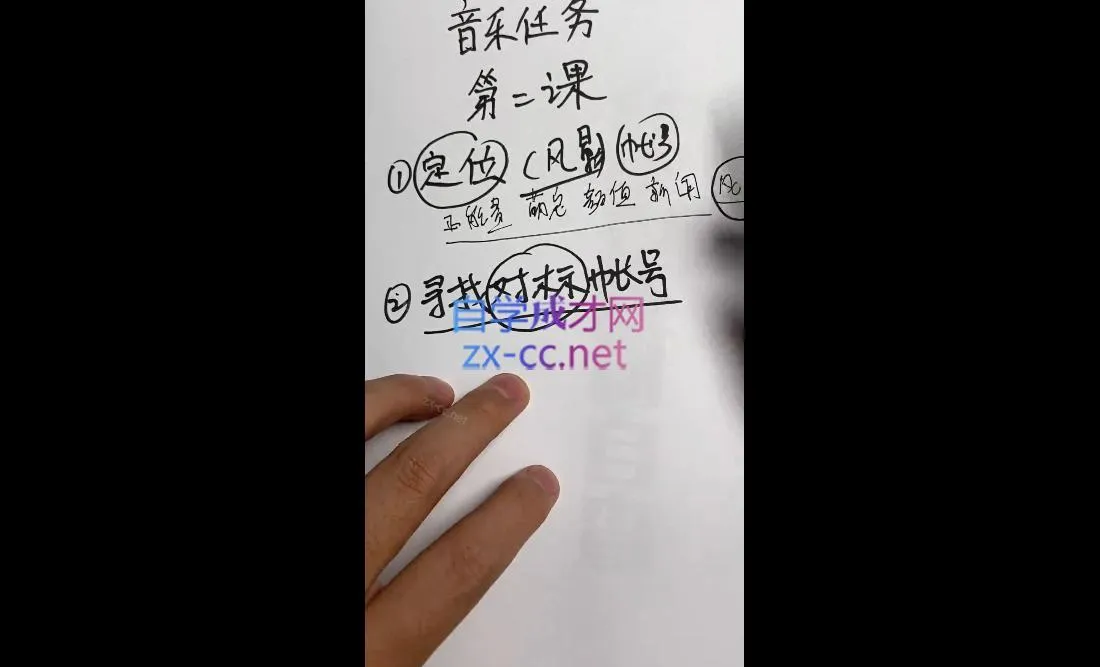 音乐任务
第二课
① 定位 (风景) 帐号
正能量 萌宠 颜值 新闻 风
② 寻找对标帐号
自学成才网
zx-cc.net
zx-cc.net